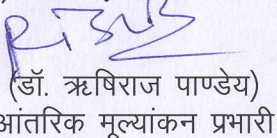 (डॉ. ऋषिराज पाण्डेय)
आंतरिक मूल्यांकन प्रभारी